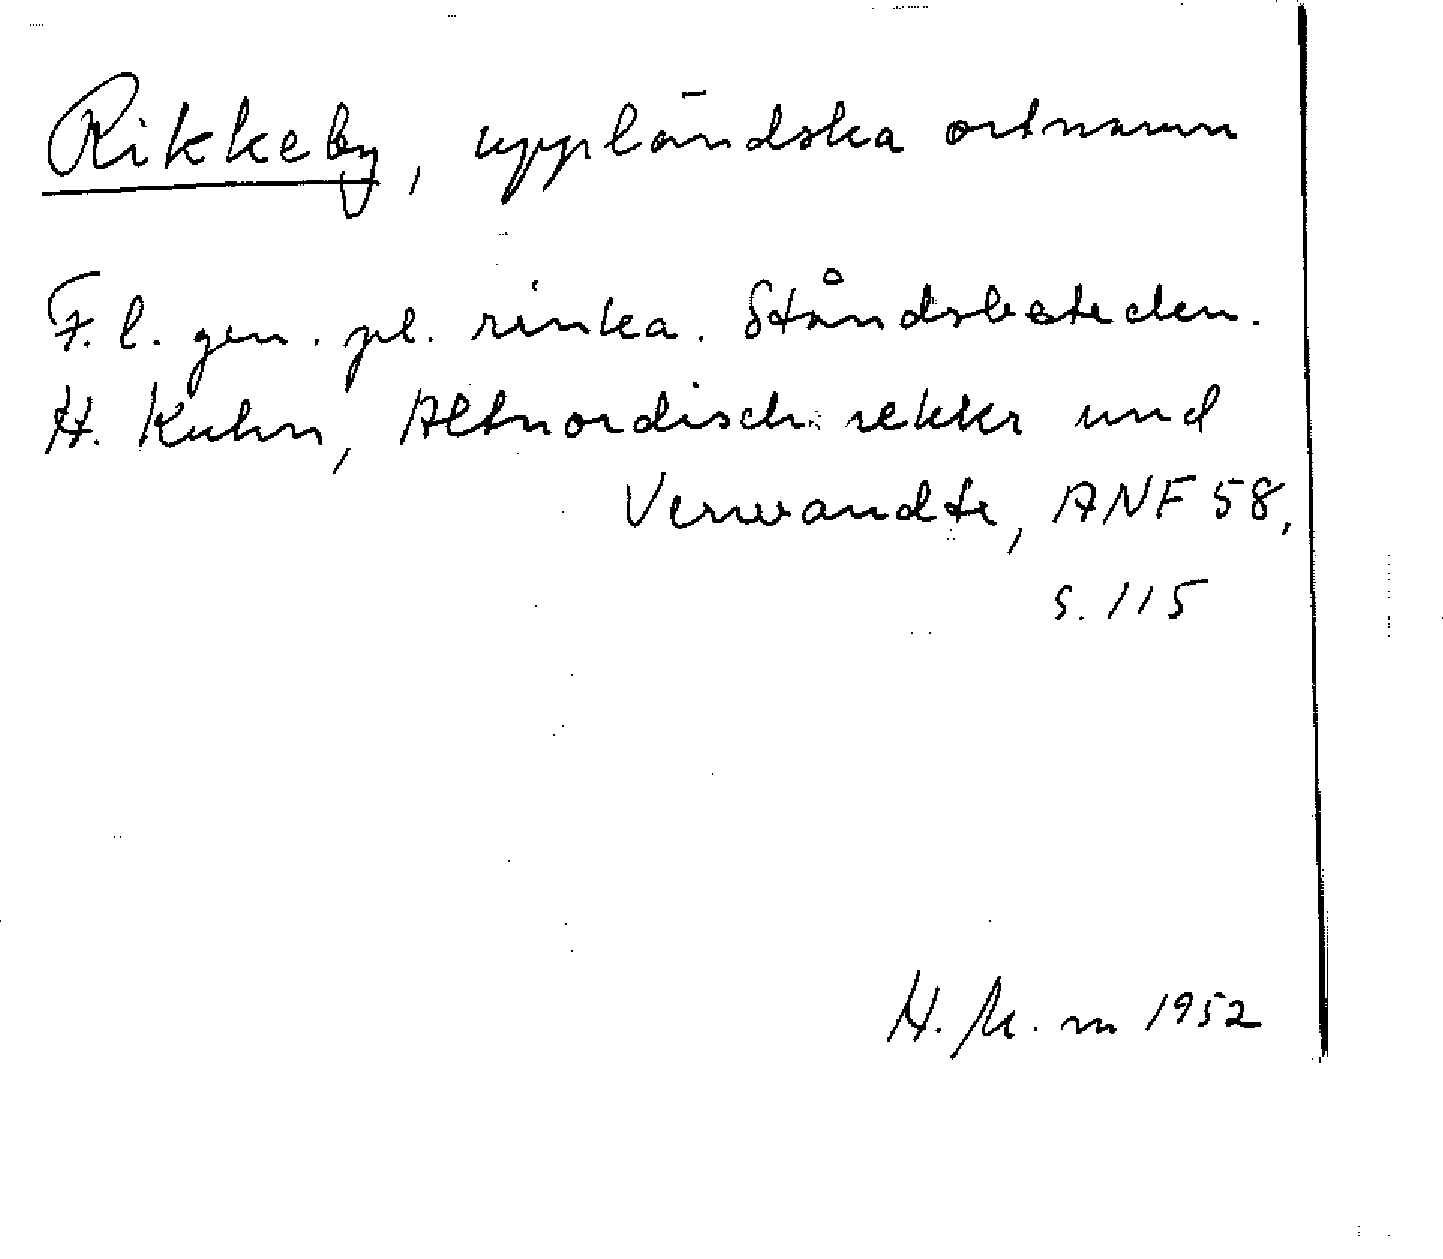 Rikkeby, uppländska ortnamn
F. l. gen. pl. rinka. Ståndsbeteckn.
H. Kuhn, Altnordisch rekkr und
Verwandte, ANF 58,
s. 115
H. M. m 1952